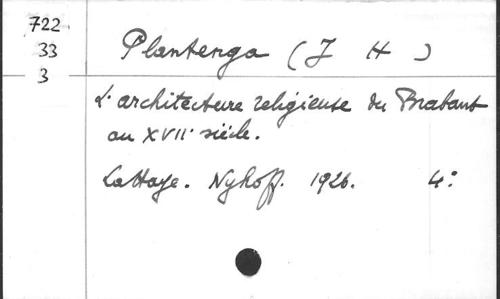 722
33
3
Plantenga (J H )
L'architecture religieuse du Brabant
au XVII' siècle.
La Haye. Nyhoff. 1926. 4: